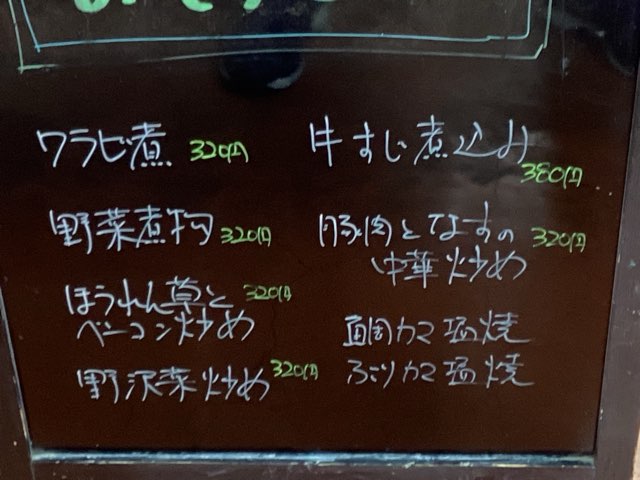 ワラビ煮 320円
野菜煮物 320円
ほうれん草と 320円
ベーコン炒め
野沢菜炒め 320円
牛すじ煮込み
380円
豚肉となすの 320円
中華炒め
鯛カマ塩焼
ぶりカマ塩焼